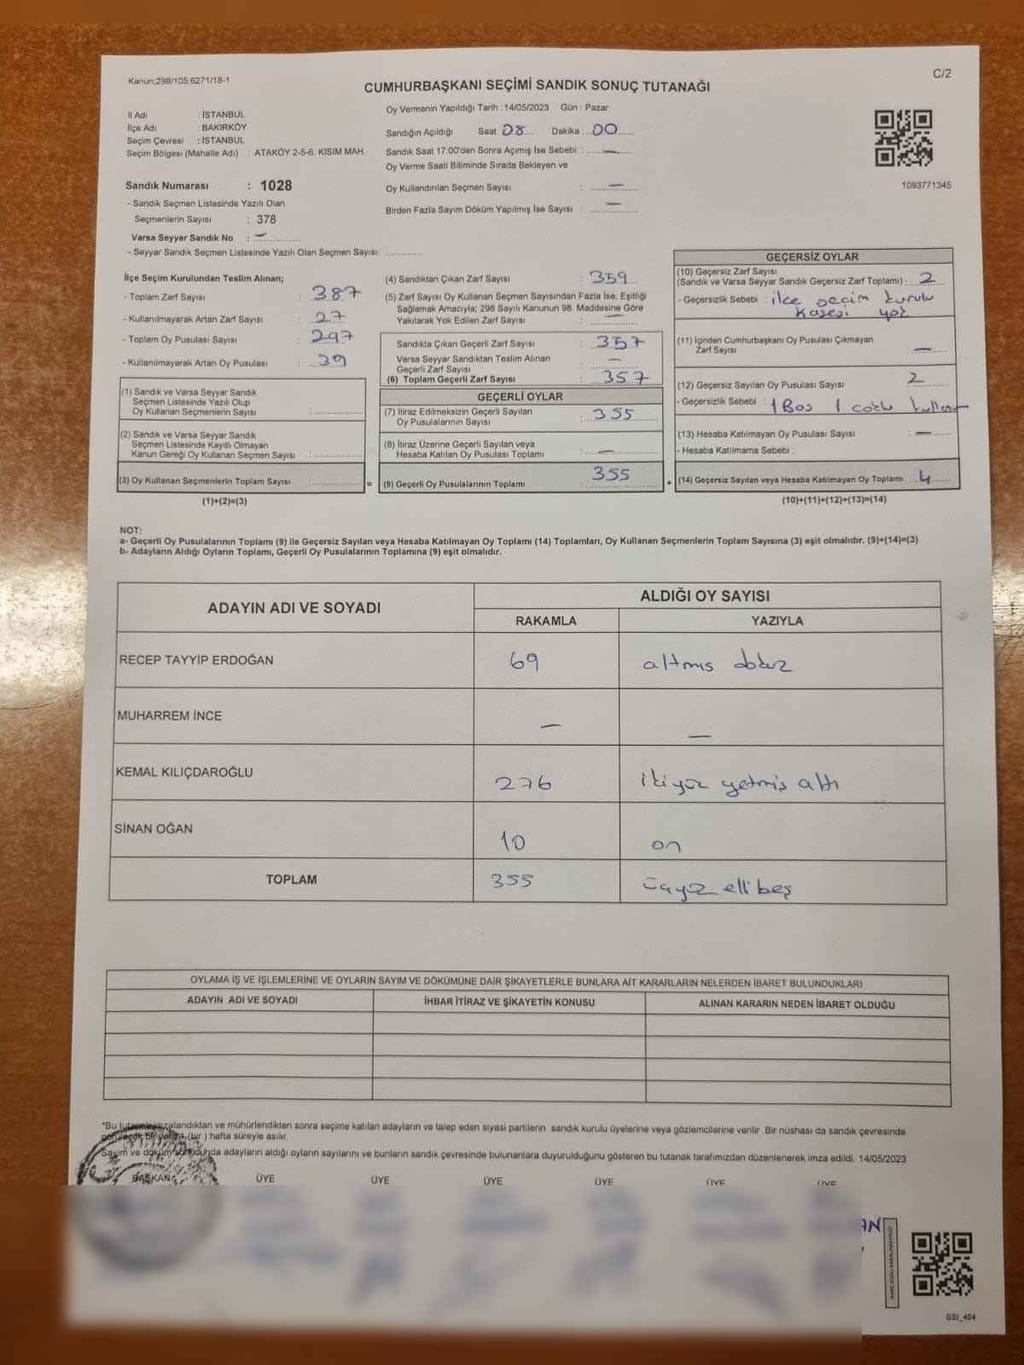 Kanun;298/105;6271/18-1
C/2
CUMHURBAŞKANI SEÇİMİ SANDIK SONUÇ TUTANAĞI
İl Adı : İSTANBUL
İlçe Adı : BAKIRKÖY
Seçim Çevresi : İSTANBUL
Seçim Bölgesi (Mahalle Adı) : ATAKÖY 2-5-6. KISIM MAH.
Oy Vermenin Yapıldığı Tarih :14/05/2023 Gün : Pazar
Sandığın Açıldığı Saat 08 Dakika 00
Sandık Saat 17:00'den Sonra Açımış İse Sebebi : —
Oy Verme Saati Bitiminde Sırada Bekleyen ve
Oy Kullandırılan Seçmen Sayısı : —
Birden Fazla Sayım Döküm Yapılmış İse Sayısı : —
1093771345
Sandık Numarası : 1028
- Sandık Seçmen Listesinde Yazılı Olan
Seçmenlerin Sayısı : 378
Varsa Seyyar Sandık No : —
- Seyyar Sandık Seçmen Listesinde Yazılı Olan Seçmen Sayısı:
İlçe Seçim Kurulundan Teslim Alınan;
- Toplam Zarf Sayısı : 387
- Kullanılmayarak Artan Zarf Sayısı : 27
- Toplam Oy Pusulası Sayısı : 297
- Kullanılmayarak Artan Oy Pusulası : 39
(1) Sandık ve Varsa Seyyar Sandık
Seçmen Listesinde Yazılı Olup
Oy Kullanan Seçmenlerin Sayısı :
(2) Sandık ve Varsa Seyyar Sandık
Seçmen Listesinde Kayıtlı Olmayan
Kanun Gereği Oy Kullanan Seçmen Sayısı :
(3) Oy Kullanan Seçmenlerin Toplam Sayısı :
=
(1)+(2)=(3)
(4) Sandıktan Çıkan Zarf Sayısı : 359
(5) Zarf Sayısı Oy Kullanan Seçmen Sayısından Fazla İse, Eşitliği
Sağlamak Amacıyla; 298 Sayılı Kanunun 98. Maddesine Göre
Yakılarak Yok Edilen Zarf Sayısı : —
Sandıkta Çıkan Geçerli Zarf Sayısı : 357
Varsa Seyyar Sandıktan Teslim Alınan
Geçerli Zarf Sayısı : —
(6) Toplam Geçerli Zarf Sayısı : 357
GEÇERLİ OYLAR
(7) İtiraz Edilmeksizin Geçerli Sayılan
Oy Pusulalarının Sayısı : 355
(8) İtiraz Üzerine Geçerli Sayılan veya
Hesaba Katılan Oy Pusulası Toplamı : —
(9) Geçerli Oy Pusulalarının Toplamı : 355
+
GEÇERSİZ OYLAR
(10) Geçersiz Zarf Sayısı
(Sandık ve Varsa Seyyar Sandık Geçersiz Zarf Toplamı) : 2
- Geçersizlik Sebebi : ilçe seçim kurulu
Kasesi yok
(11) İçinden Cumhurbaşkanı Oy Pusulası Çıkmayan
Zarf Sayısı : —
(12) Geçersiz Sayılan Oy Pusulası Sayısı 2
- Geçersizlik Sebebi : 1 Boş 1
(13) Hesaba Katılmayan Oy Pusulası Sayısı : —
- Hesaba Katılmama Sebebi :
(14) Geçersiz Sayılan veya Hesaba Katılmayan Oy Toplamı : 4
(10)+(11)+(12)+(13)=(14)
NOT:
a- Geçerli Oy Pusulalarının Toplamı (9) ile Geçersiz Sayılan veya Hesaba Katılmayan Oy Toplamı (14) Toplamları, Oy Kullanan Seçmenlerin Toplam Sayısına (3) eşit olmalıdır. (9)+(14)=(3)
b- Adayların Aldığı Oyların Toplamı, Geçerli Oy Pusulalarının Toplamına (9) eşit olmalıdır.
ADAYIN ADI VE SOYADI
ALDIĞI OY SAYISI
RAKAMLA YAZIYLA
RECEP TAYYİP ERDOĞAN 69 altmış dokuz
MUHARREM İNCE — —
KEMAL KILIÇDAROĞLU 276 ikiyüz yetmiş altı
SİNAN OĞAN 10 on
TOPLAM 355 üçyüz elli beş
OYLAMA İŞ VE İŞLEMLERİNE VE OYLARIN SAYIM VE DÖKÜMÜNE DAİR ŞİKAYETLERLE BUNLARA AİT KARARLARIN NELERDEN İBARET BULUNDUKLARI
ADAYIN ADI VE SOYADI İHBAR İTİRAZ VE ŞİKAYETİN KONUSU ALINAN KARARIN NEDEN İBARET OLDUĞU
*Bu tutanak imzalandıktan ve mühürlendikten sonra seçime katılan adayların ve talep eden siyasi partilerin sandık kurulu üyelerine veya gözlemcilerine verilir .Bir nüshası da sandık çevresinde
(bir ) hafta süreyle asılır.
Sayım ve döküm sonucunda adayların aldığı oyların sayılarını ve bunların sandık çevresinde bulunanlara duyurulduğunu gösteren bu tutanak tarafımızdan düzenlenerek imza edildi. 14/05/2023
BAŞKAN ÜYE ÜYE ÜYE ÜYE ÜYE ÜYE
AN
SSI_404